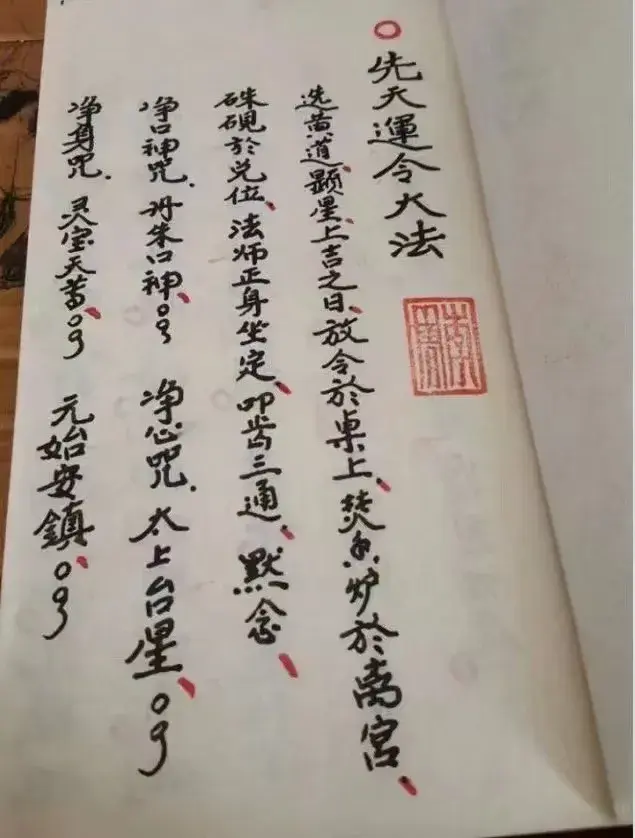 ○先天運令大法
选黄道、顕星、上吉之日、放令於桌上、焚香炉於离宫、
硃硯於兑位、法师正身坐定、叩齿三通、默念、
净口神咒、丹朱口神、○○ 净心咒、太上台星、○○
净身咒、灵宝天尊、○○ 元始安鎮、○○